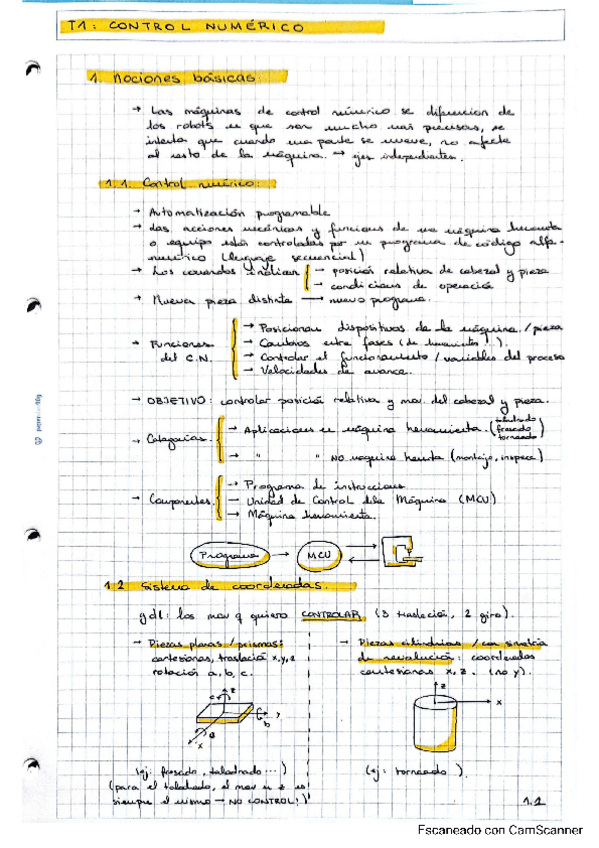 T1: CONTROL NUMÉRICO
1. Nociones básicas:
→ Las máquinas de control númerico se diferencian de
los robots en que son mucho más precisas, se
intenta que cuando una parte se mueve, no afecte
al resto de la máquina. → ejes independientes.
1.1. Control numérico:
→ Automatización programable
→ Las acciones mecánicas y funciones de una máquina herramienta
o equipo están controladas por un programa de código alfa-
numérico (lenguaje secuencial)
→ Los comandos indican → posición relativa de cabezal y pieza
→ condiciones de operación
→ Nueva pieza distinta → nuevo programa.
→ Posicionan dispositivos de la máquina / pieza
→ Funciones → Cambios entre fases (de herramientas !).
del C.N. → Controlar el funcionamiento / variables del proceso
→ Velocidades de avance.
→ OBJETIVO: controlar posición relativa y mov. del cabezal y pieza.
→ Categorías. → Aplicaciones en máquina herramienta. (taladrado
fresado
torneado)
→ " " NO máquina herrmta (montaje, inspecc)
→ Programa de instrucciones
→ Componentes. → Unidad de Control de la Máquina (MCU)
→ Máquina herramienta.
Programa → MCU
1.2 Sistema de coordenadas.
gdl: los mov q quiero CONTROLAR (3 traslación, 2 giro).
→ Piezas planas / prismas:
cartesianas, traslación x,y,z
rotación a, b, c.
z
c
y
b
a
x
(ej: fresado, taladrado ...)
(para el taladrado, el mov en z es
siempre el mismo → NO CONTROL!)
→ Piezas cilíndricas / con simetría
de revolución: coordenadas
cartesianas x, z. (no y).
z
x
(ej: torneado).
1.1
Escaneado con CamScanner